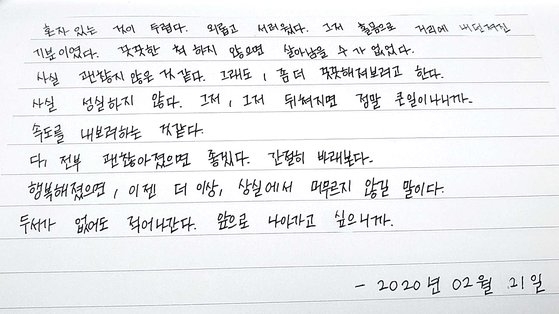 혼자 있는 것이 두렵다. 외롭고 서러웠다. 그저 홀몸으로 거리에 내던져진
기분이였다. 꿋꿋한 척 하지 않으면 살아남을 수가 없었다.
사실 괜찮지 않은 것 같다. 그래도, 좀 더 꿋꿋해져보려고 한다.
사실 성실하지 않다. 그저, 그저 뒤쳐지면 정말 큰일이나니까.
속도를 내보려하는 것같다.
다, 전부 괜찮아졌으면 좋겠다. 간절히 바래본다.
행복해졌으면, 이젠 더 이상, 상실에서 머무르지 않길 말이다.
두서가 없어도 적어나간다. 앞으로 나아가고 싶으니까.
- 2020년 02월 21일